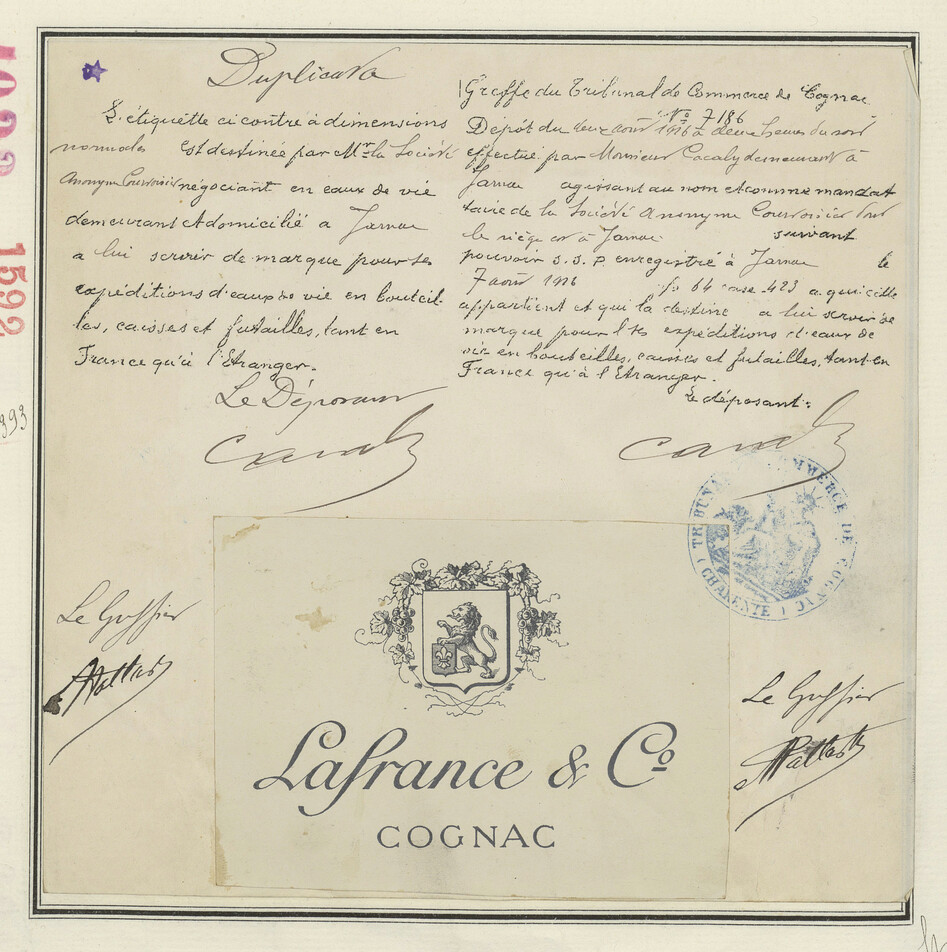 Duplicata
L'étiquette ci contre à dimensions
normales est destinée par Mr la Société
Anonyme Courvoisier négociant en eaux de vie
demeurant et domicilié a Jarnac
a lui servir de marque pour ses
expéditions d'eaux de vie en bouteil-
les, caisses et futailles, tant en
France qu'à l'Etranger.
Le Déposant
Greffe du Tribunal de Commerce de Cognac
No 7186
Dépôt du deux août 1916 à deux heures du soir
effectué par Monsieur demeurant à
Jarnac agissant au nom et comme mandat
taire de la Société Anonyme Courvoisier dont
le siège est à Jarnac suivant
pouvoir S.S.P. enregistré à Jarnac le
7 août 1916 fo 64 case 423 a qui elle
appartient et qui la destine a lui servir de
marque pour les expéditions d'eaux de
vie en bouteilles, caisses et futailles, tant en
France qu'à l'Etranger.
Le déposant:
TRIBUNAL DE COMMERCE DE COGNAC
(CHARENTE)
Le Greffier
Le Greffier
Lafrance & Co
COGNAC
1592
393